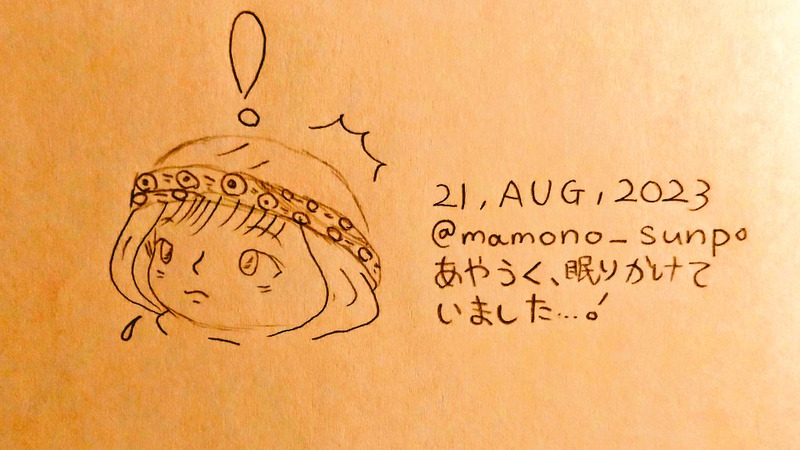 21, AUG, 2023
@mamono_sunpo
あやうく、眠りかけて
いました…!